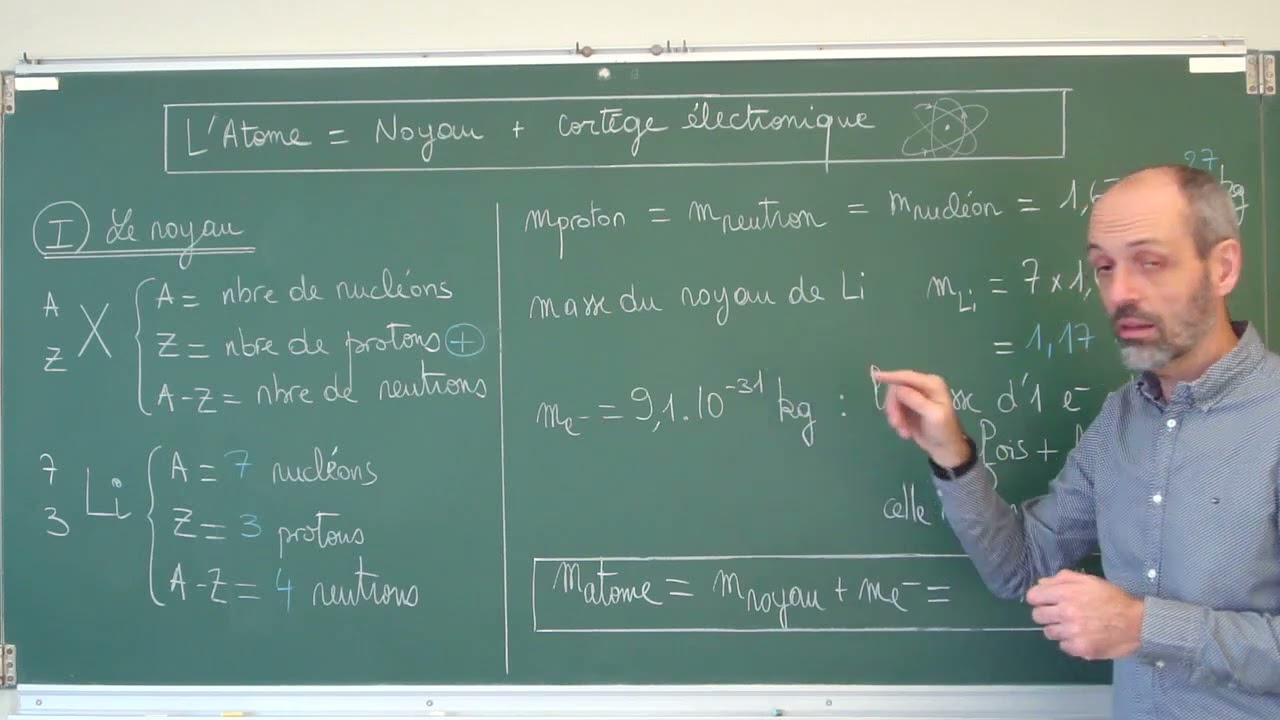 L'Atome = Noyau + cortège électronique
I Le noyau
A
Z X
A = nbre de nucléons
Z = nbre de protons +
A-Z = nbre de neutrons
7
3 Li
A = 7 nucléons
Z = 3 protons
A-Z = 4 neutrons
mproton = mneutron = mnucléon = 1,6 27 kg
masse du noyau de Li mLi = 7 x 1,
= 1,17
me- = 9,1.10-31 kg : d'1 e-
fois +
celle
matome = mnoyau + me- =